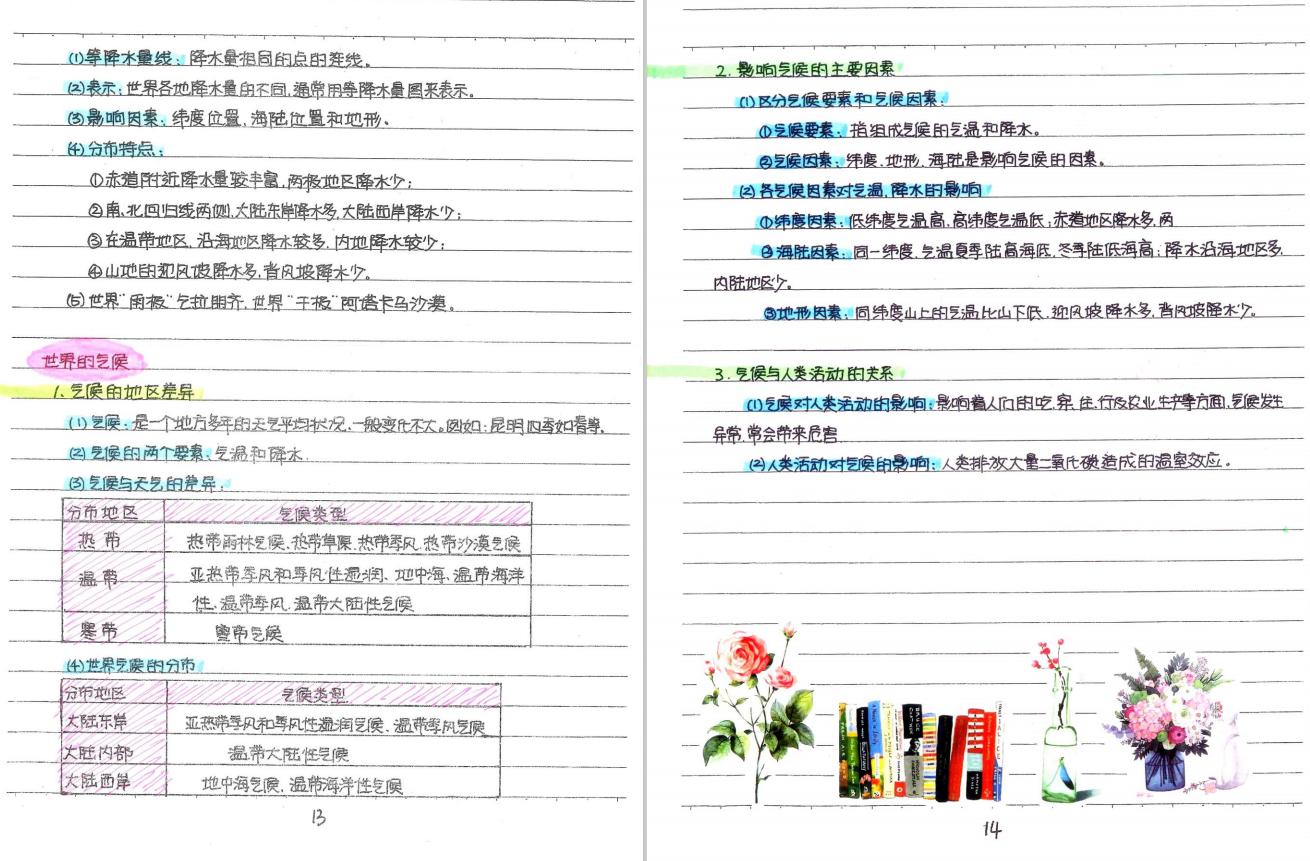 (1)等降水量线：降水量相同的点的连线。
(2)表示：世界各地降水量的不同，通常用等降水量图来表示。
(3)影响因素：纬度位置、海陆位置和地形。
(4)分布特点：
①赤道附近降水量较丰富，两极地区降水少；
②南、北回归线两侧，大陆东岸降水多，大陆西岸降水少；
③在温带地区，沿海地区降水较多，内地降水较少；
④山地的迎风坡降水多，背风坡降水少。
(5)世界“雨极”乞拉朋齐，世界“干极”阿塔卡马沙漠。
世界的气候
1.气候的地区差异
(1)气候：是一个地方多年的天气平均状况，一般变化不大。例如：昆明四季如春等。
(2)气候的两个要素：气温和降水.
(3)气候与天气的差异：
分布地区 气候类型
热带 热带雨林气候、热带草原、热带季风、热带沙漠气候
温带 亚热带季风和季风性湿润、地中海、温带海洋
性、温带季风、温带大陆性气候
寒带 寒带气候
(4)世界气候的分布
分布地区 气候类型
大陆东岸 亚热带季风和季风性湿润气候、温带季风气候
大陆内部 温带大陆性气候
大陆西岸 地中海气候、温带海洋性气候
13
2.影响气候的主要因素
(1)区分气候要素和气候因素：
①气候要素：指组成气候的气温和降水。
②气候因素：纬度、地形、海陆是影响气候的因素。
(2)各气候因素对气温、降水的影响
①纬度因素：低纬度气温高，高纬度气温低；赤道地区降水多，两
②海陆因素：同一纬度，气温夏季陆高海低，冬季陆低海高；降水沿海地区多，
内陆地区少。
③地形因素：同纬度山上的气温比山下低，迎风坡降水多，背风坡降水少。
3.气候与人类活动的关系
(1)气候对人类活动的影响：影响着人们的吃、穿、住、行及农业生产等方面，气候发生
异常，常会带来危害
(2)人类活动对气候的影响：人类排放大量二氧化碳造成的温室效应。
14